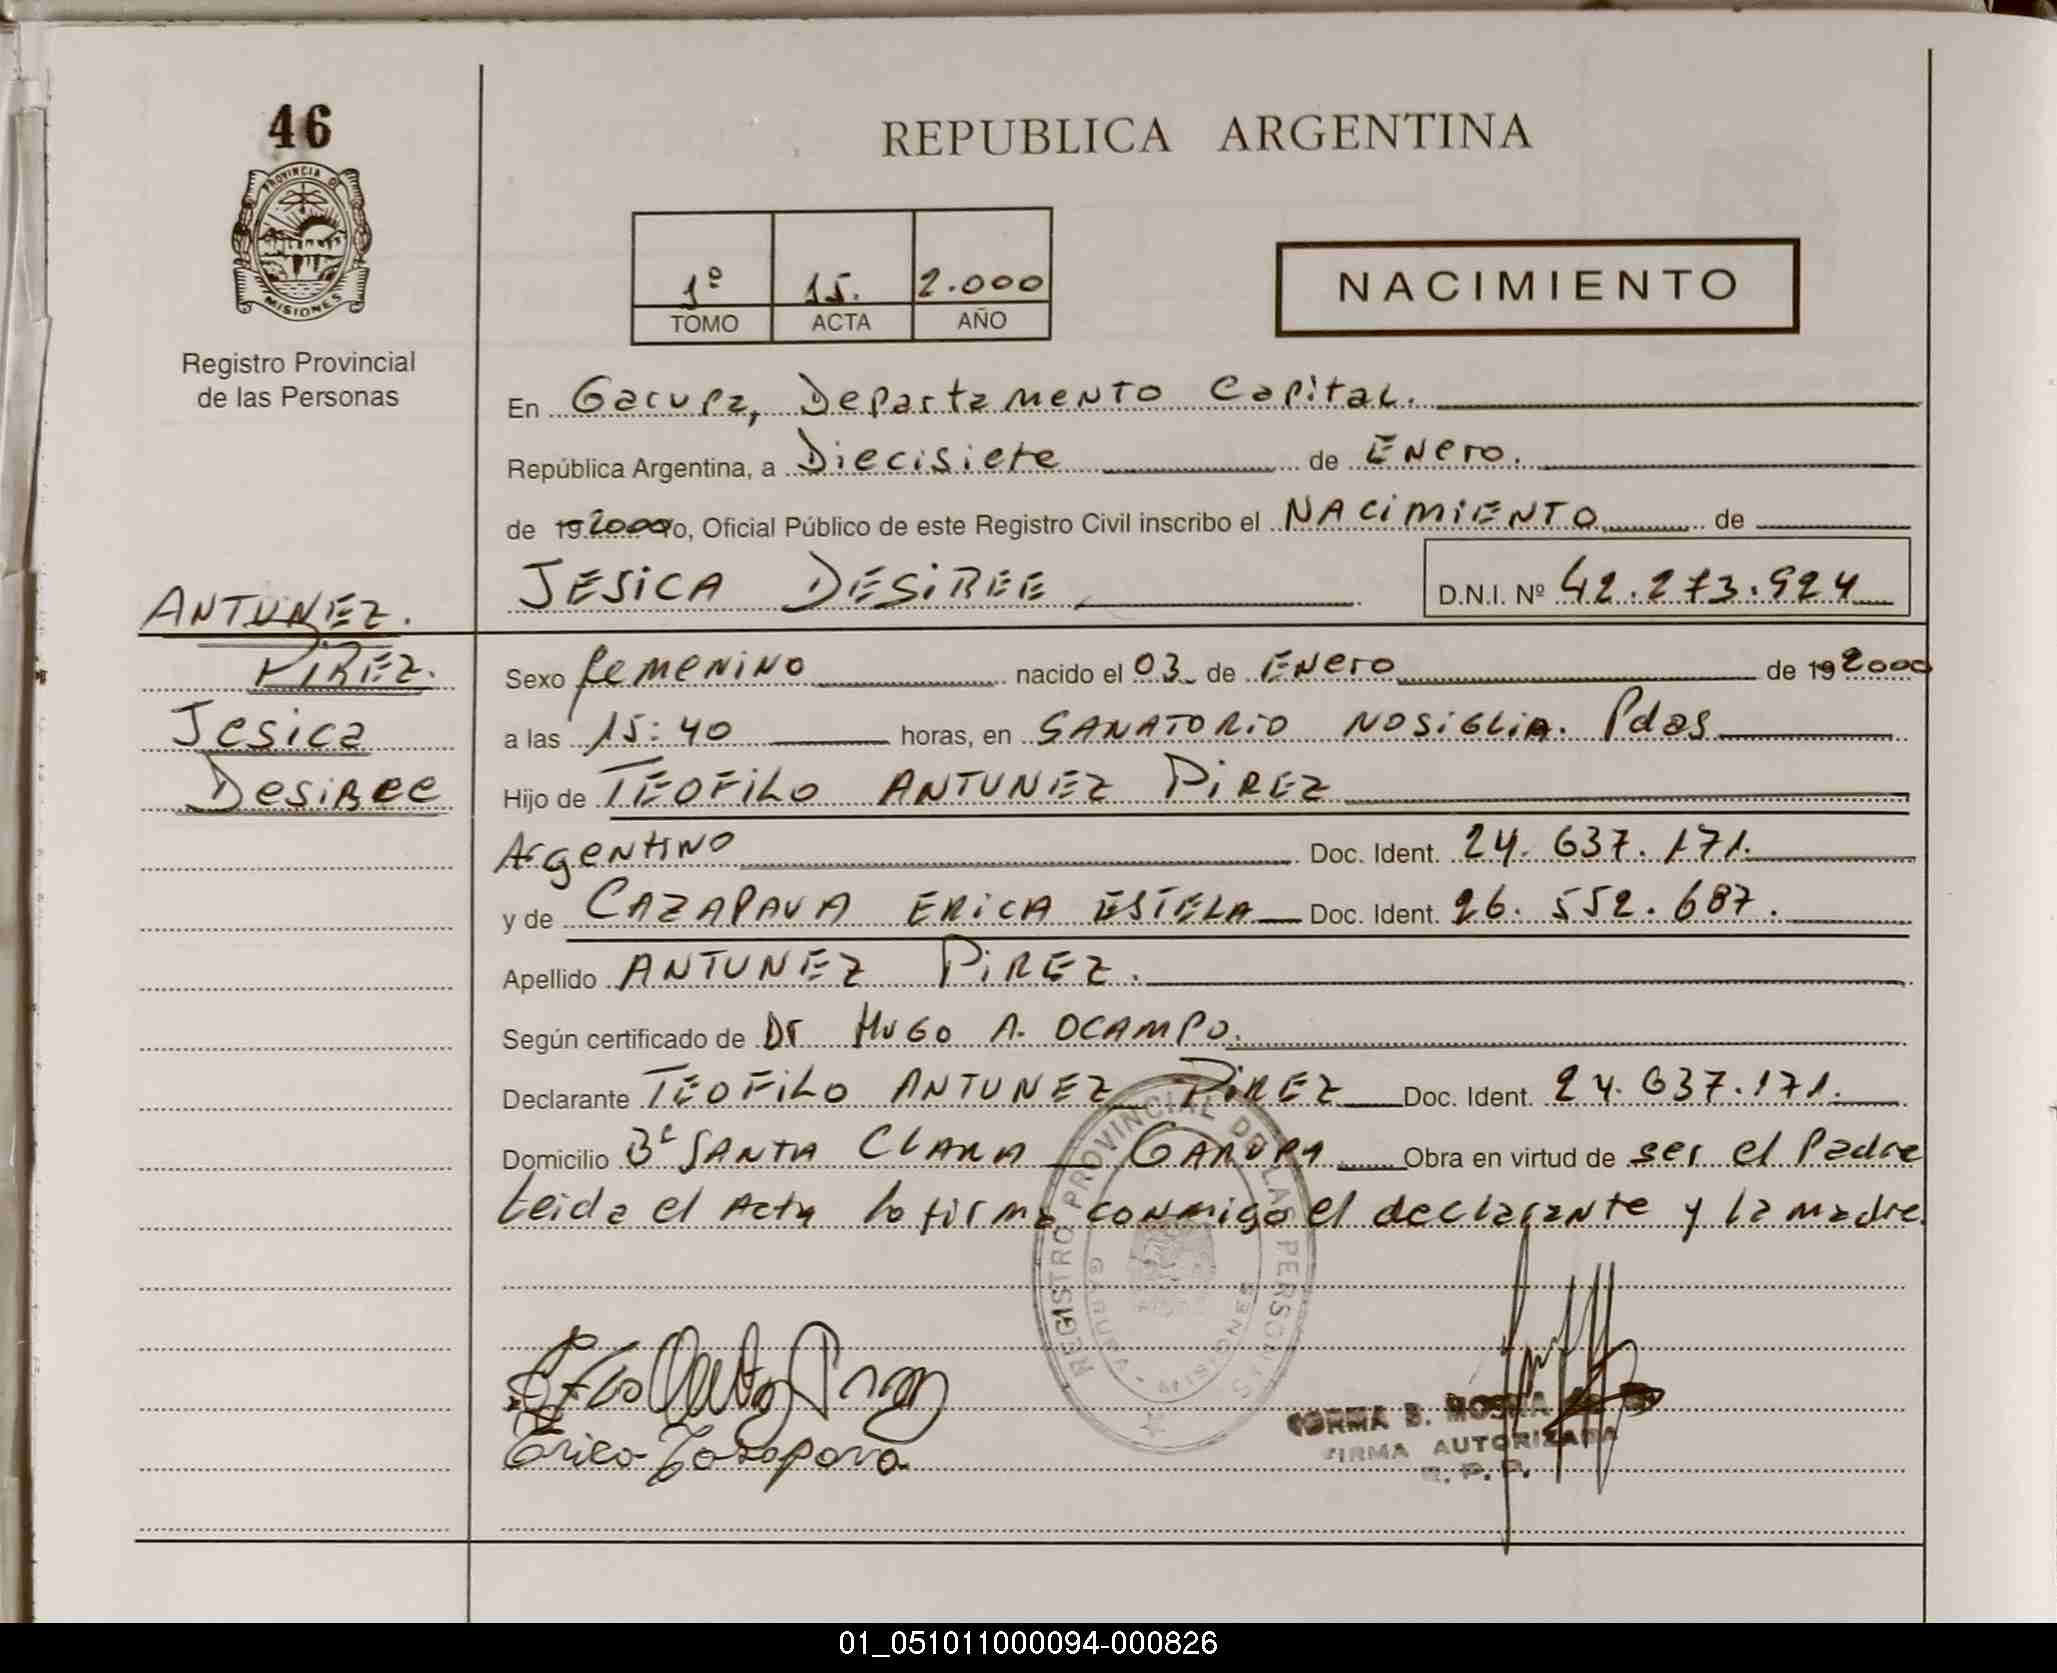 46
PROVINCIA DE
MISIONES
Registro Provincial
de las Personas
REPUBLICA ARGENTINA
1º 15. 2.000
TOMO ACTA AÑO
NACIMIENTO
En Garupa, Departamento Capital.
República Argentina, a Diecisiete de Enero.
de 19 2000 yo, Oficial Público de este Registro Civil inscribo el NACIMIENTO de
JESICA DESIREE D.N.I. Nº 42.273.924
ANTUNEZ.
PIREZ.
Jesica
Desiree
Sexo femenino nacido el 03 de Enero de 19 2000
a las 15:40 horas, en SANATORIO NOSIGLIA. Pdas
Hijo de TEOFILO ANTUNEZ PIREZ
Argentino Doc. Ident. 24.637.171.
y de CAZAPAVA ERICA ESTELA Doc. Ident. 26.552.687.
Apellido ANTUNEZ PIREZ.
Según certificado de Dr HUGO A. OCAMPO.
Declarante TEOFILO ANTUNEZ PIREZ Doc. Ident. 24.637.171.
Domicilio Bº SANTA CLARA GARUPA Obra en virtud de ser el Padre
Leida el Acta la firma conmigo el declarante y la madre.
REGISTRO PROVINCIAL DE LAS PERSONAS
GARUPA - MISIONES
Erica Cazapava
NORMA B.
FIRMA AUTORIZADA
R. P. P.
01_051011000094-000826